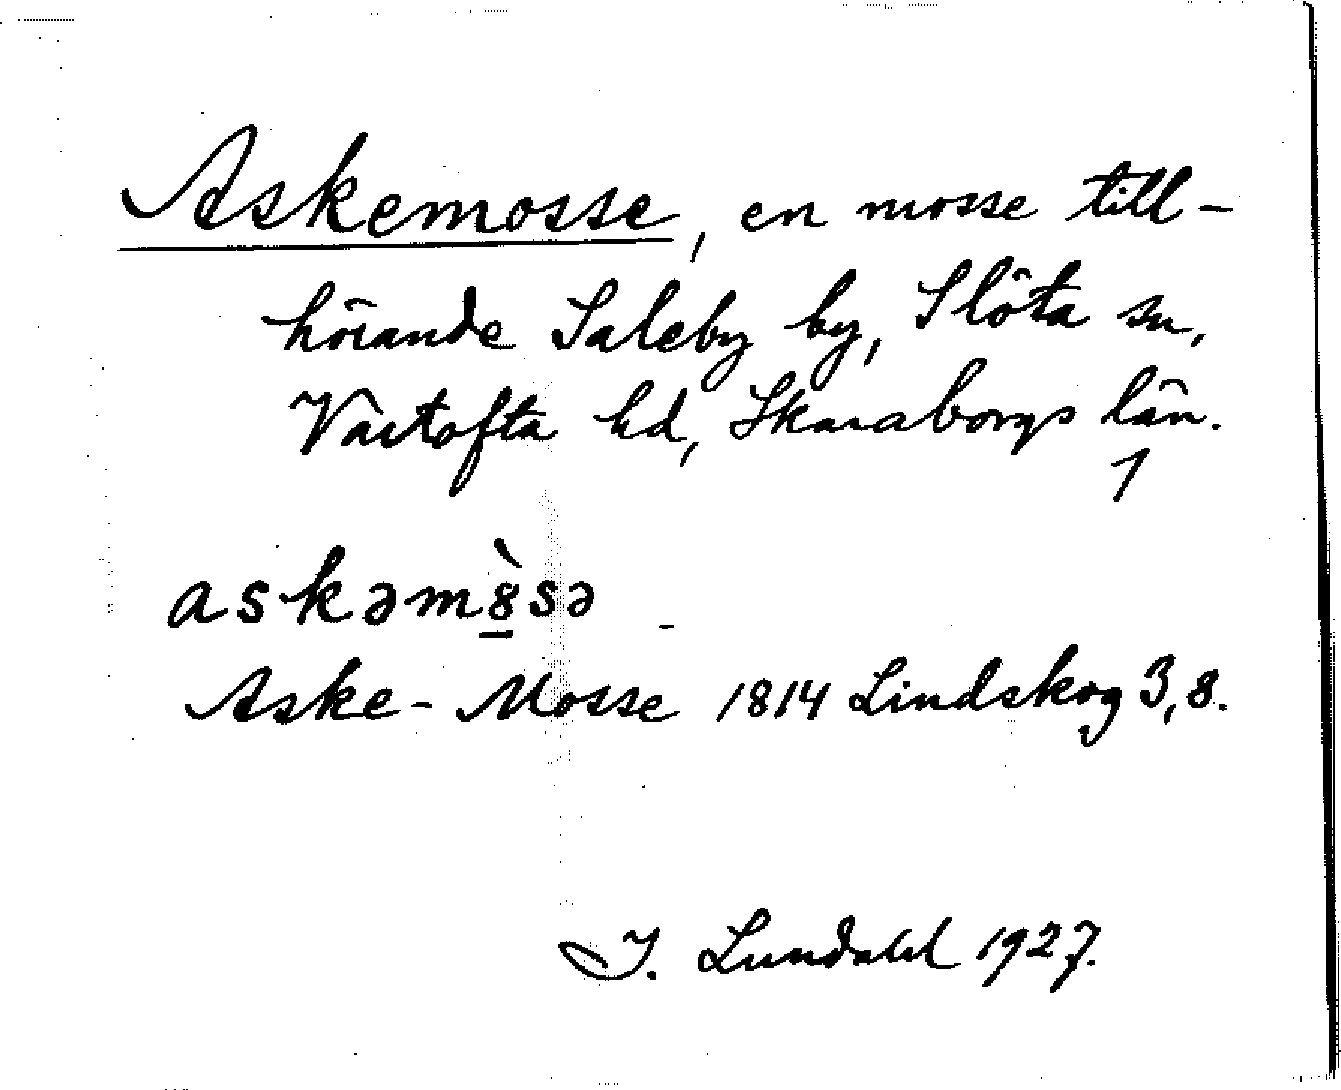 Askemosse, en mosse till-
hörande Saleby by, Slöta sn,
Vartofta hd, Skaraborgs län.
1
askəm8̱̀sə
Aske-Mosse 1814 Lindskog 3,8.
I. Lundahl 1927.